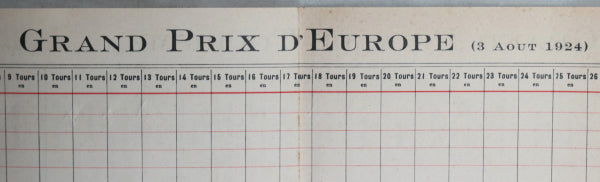 GRAND PRIX D'EUROPE (3 AOUT 1924)
9 Tours 10 Tours 11 Tours 12 Tours 13 Tours 14 Tours 15 Tours 16 Tours 17 Tours 18 Tours 19 Tours 20 Tours 21 Tours 22 Tours 23 Tours 24 Tours 25 Tours 26
en en en en en en en en en en en en en en en en en